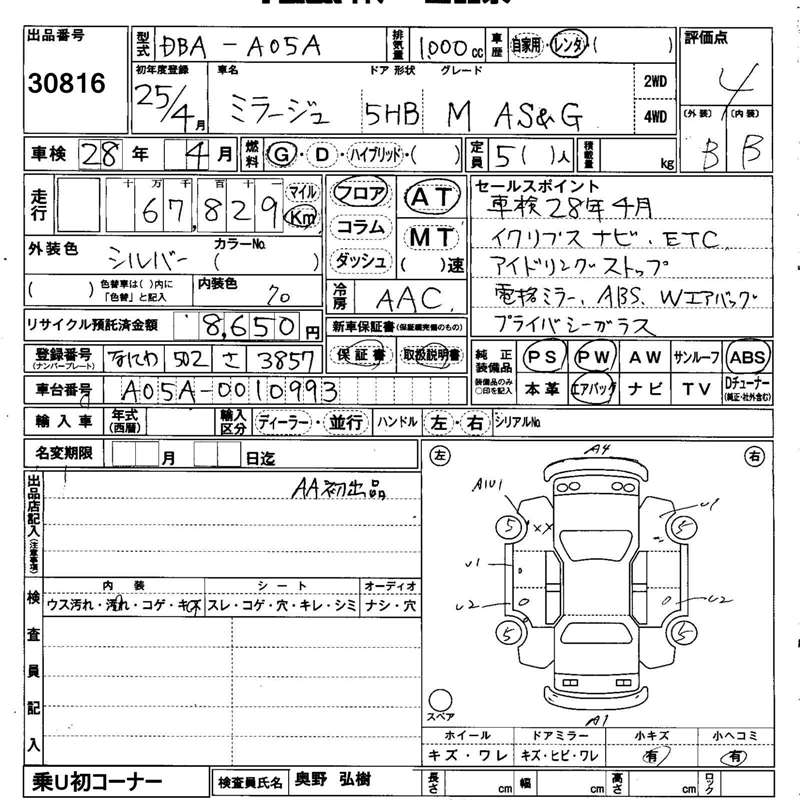 出品番号
30816
型式 DBA - A05A
排気量 1,000 cc
車歴 自家用・レンタ・( )
評価点
4
初年度登録
25/4月
車名
ミラージュ
ドア 形状
5HB
グレード
M AS&G
2WD
4WD
(外装) (内装)
B B
車検 28 年 4 月
燃料 G・D・ハイブリッド・( )
定員 5( )人
積載量 kg
走行
十 万 千 百 十 一
67,829
マイル
Km
フロア
コラム
ダッシュ
AT
MT
( )速
セールスポイント
車検28年4月
イクリプスナビ、ETC
アイドリングストップ
電格ミラー、ABS、Wエアバッグ
プライバシーガラス
外装色
シルバー
カラーNo.
( )
( )
色替車は( )内に
「色替」と記入
内装色
70
冷房 AAC
リサイクル預託済金額 8,650 円
新車保証書(保証継続完備のもの)
保証書 取扱説明書
登録番号
(ナンバープレート)
なにわ 502 さ 3857
純正装備品
装備品のみ
○印を記入
PS PW AW サンルーフ ABS
本革 エアバッグ ナビ TV Dチューナー
(純正・社外含む)
車台番号 A05A-0010993
輸入車 年式
(西暦)
輸入区分 ディーラー・並行
ハンドル 左・右
シリアルNo.
名変期限 月 日迄
出品店記入(注意事項)
AA初出品
左
右
A4
A1U1
U1
5
5
××
U1
U2
U2
5
5
A1
スペア
検査員記入
内装
シート
オーディオ
ウス汚れ・汚れ・コゲ・キズ
スレ・コゲ・穴・キレ・シミ
ナシ・穴
ホイール ドアミラー 小キズ 小ヘコミ
キズ・ワレ キズ・ヒビ・ワレ 有 有
乗U初コーナー
検査員氏名 奥野 弘樹
長さ cm 幅 cm 高さ cm ロック